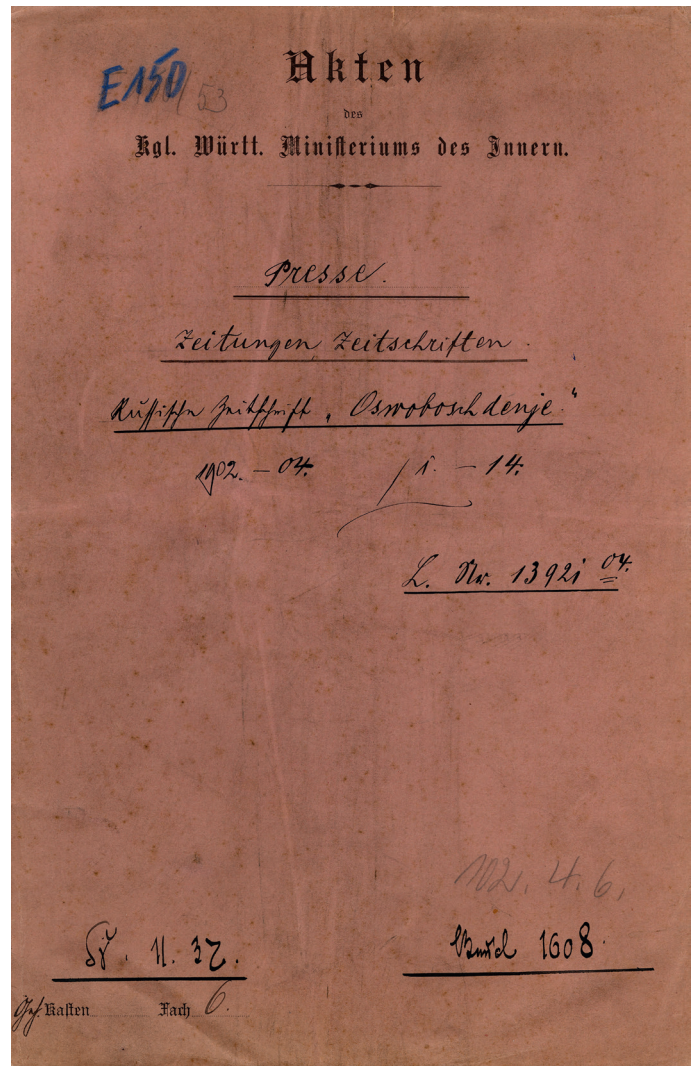 E 150 / 53
Akten
des
Kgl. Württ. Ministeriums des Innern.
Presse.
Zeitungen, Zeitschriften.
Russische Zeitschrift „Oswoboschdenje."
1902. – 04. / 1. – 14.
L. Nr. 1392i 04.
102. 4. 6.
II. 37.
Büschel 1608.
Geh. Kasten Fach 6.